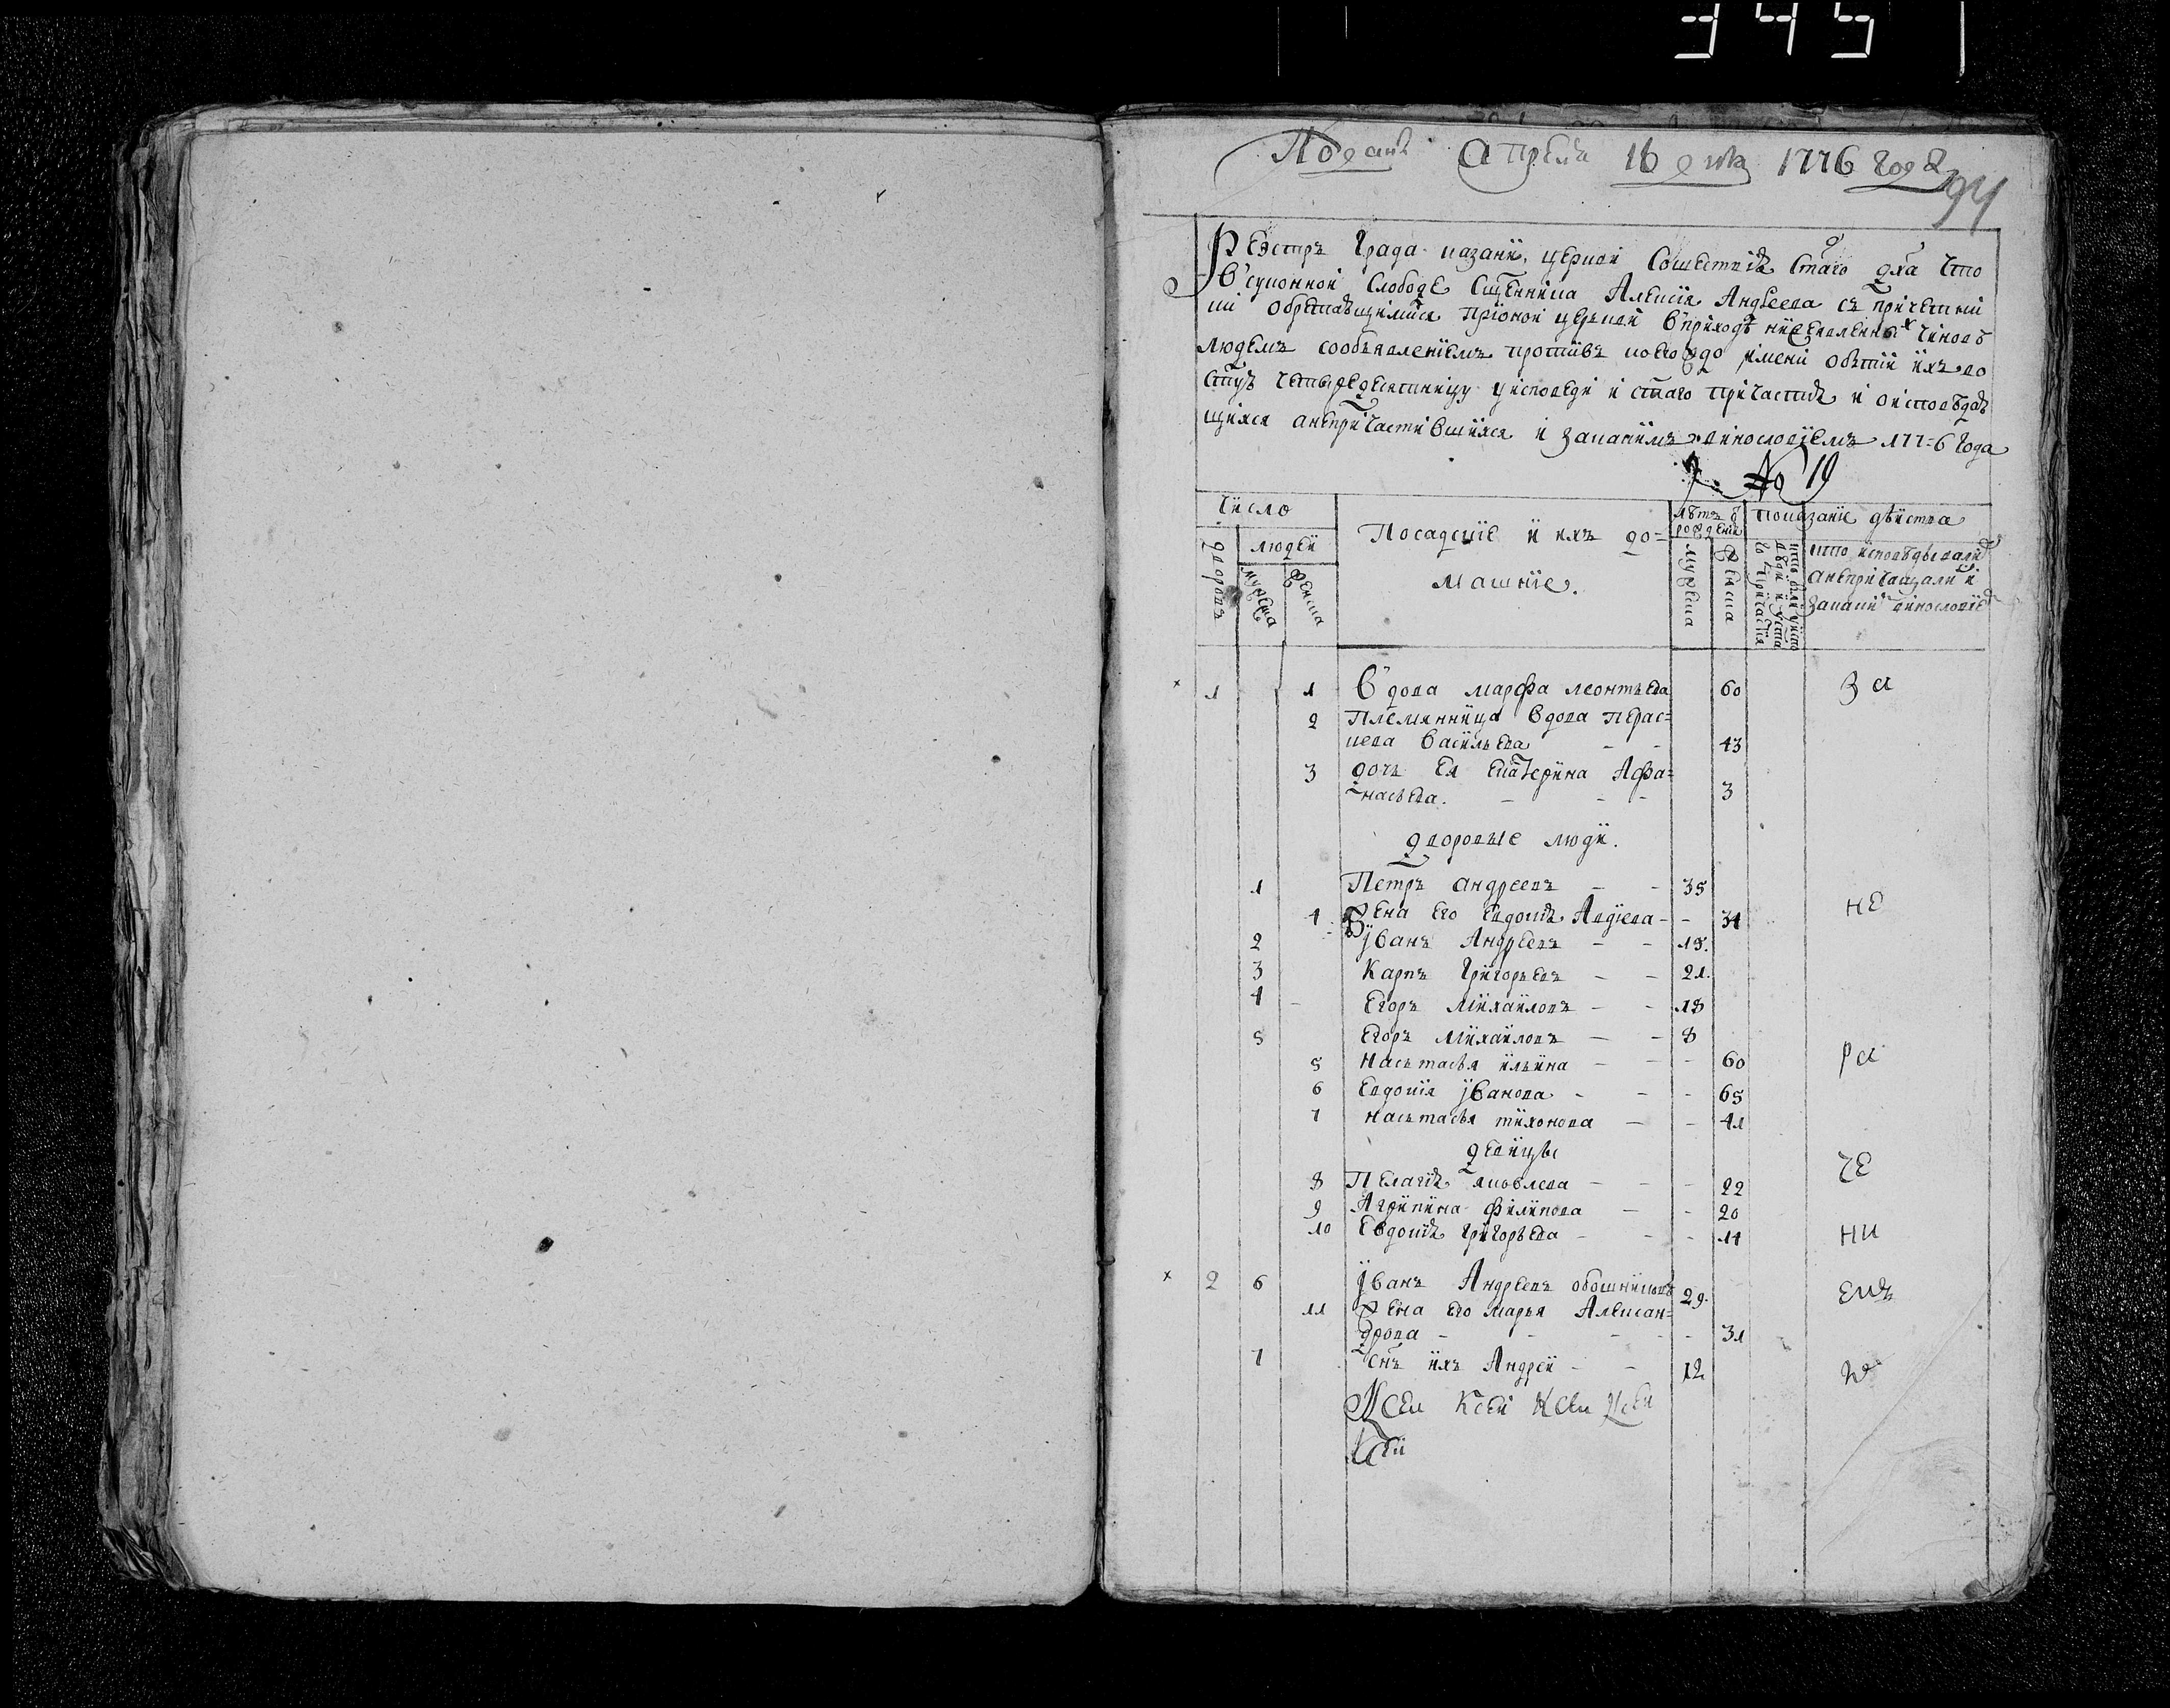 345
Поданъ апреля 16 дня 1776 года
94
Реэстръ града казани, церкви Сошествия стаго дха что
в суконной слободе сщенника Алексiя Андреева съ причетни
ки обретающимися при оной церкви в приходе нижеявленныхъ чиновъ
людемъ со объявленiемъ противъ коегождо имени о бытiи ихъ во
стую четыредесятницу у исповеди и стаго причастiя и о исповедав
шихся а непричастившихся и за какимъ винословiемъ 177=6 года
№ 19
Число
дворовъ
людей
мужеска
женска
Посадскiе и ихъ до=
машнiе.
летъ о
рожденiя
мужеска
женска
показанiе действа
кто исповедывали
а не причащали и
за какимъ винословiе
1 1 вдова марфа леонтьева 60 За
2 Племянница вдова перас=
кева васильева - - 43
3 дочь ея екатерина Афа=
насьева. - - - 3
дворовые люди.
1 Петръ андреевъ - - 35
4 жена его евдокiя Авдiева - - 34 не
2 Iванъ Андреевъ - - 18.
3 Карпъ григорьевъ - - 21.
4 - Егоръ михайловъ - - 18
5 Егоръ михайловъ - - 8
5 Насьтасья ильина - - 60 ра
6 Евдокiя Iванова - - - 65
7 насьтасья тихонова - - 41
девицы
8 Пелагiя яковлева - - - 22 че
9 Агрипина филипова - - 20
10 Евдокiя григорьева - - - 14 ни
2 6 Iванъ Андреевъ 29.
11 жена его марья Алексан= емъ
дрова - - - - - 31
7 снъ ихъ Андрей - - 12
Ксеи Ксеи Ксеи Ксеи
Ксеи